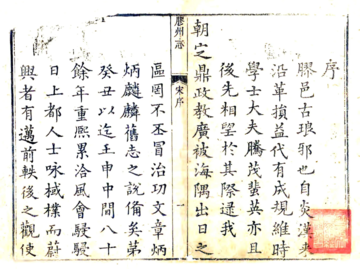 序
膠邑古琅邪也自炎漢来
沿革損益代有成規維時
學士大夫騰茂蜚英亦且
後先相望於其際逮我
朝定鼎政教廣被海隅出日之
膠州志
宋序
一
區罔不丕冒治功文章炳
炳麟麟舊志之說備矣第
癸丑以迄壬申中間八十
餘年重熙累洽風會駸駸
日上都人士咏棫樸而蔚
興者有邁前軼後之觀使